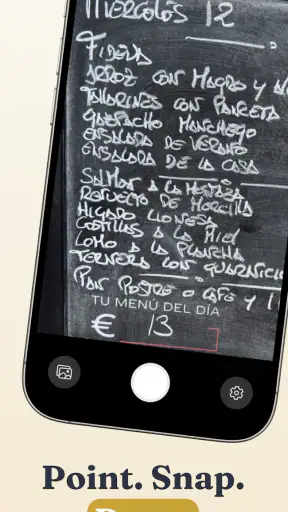 MIERCOLES 12
FIDEUA
ARROZ CON MAGRO Y
TALLARINES CON PANCETA
GAZPACHO MANCHEGO
ENSALADA DE VERANO
ENSALADA DE LA CASA
SALMON A LA MOSTAZA
REVUELTO DE MORCILLA
HIGADO LIONESA
COSTILLAS A LA MIEL
LOMO A LA PLANCHA
TERNERA CON GUARNICIO
PAN POSTRE O CAFE Y 1
TU MENÚ DEL DÍA
€ 13
Point. Snap.